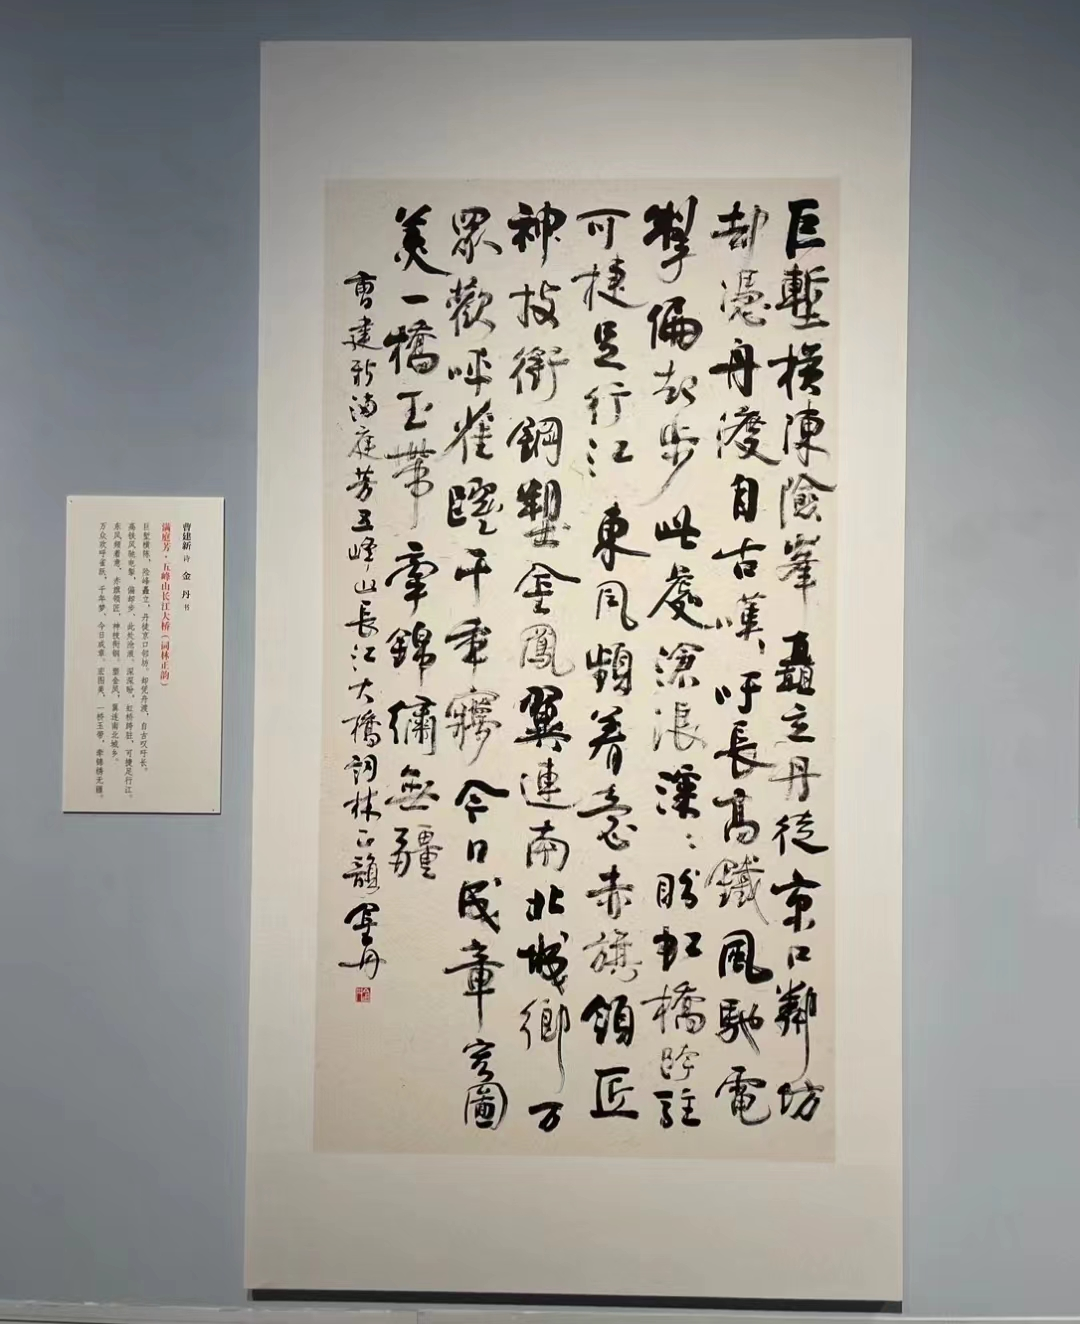 巨塹橫陳險峯矗立丹徒京口鄰坊
却憑舟渡自古嘆吁長高鐵風馳電
掣偏却步此處滄浪深〻盼虹橋跨駐
可捷足行江東風頻着意赤旗領匠
神技銜鋼塑金鳳翼連南北城鄉万
眾歡呼雀躍千年夢今日成章宏圖
美一橋玉帶牽錦繡無疆
曹建新滿庭芳五峰山長江大橋詞林正韻金丹
曹建新 诗 金丹 书
满庭芳·五峰山长江大桥（词林正韵）
巨堑横陈，险峰矗立，丹徒京口邻坊。却凭舟渡，自古叹吁长。
高铁风驰电掣，偏却步、此处沧浪。深深盼，虹桥跨驻，可捷足行江。
东风频着意，赤旗领匠，神技衔钢。塑金凤，翼连南北城乡。
万众欢呼雀跃，千年梦、今日成章。宏图美，一桥玉带，牵锦绣无疆。